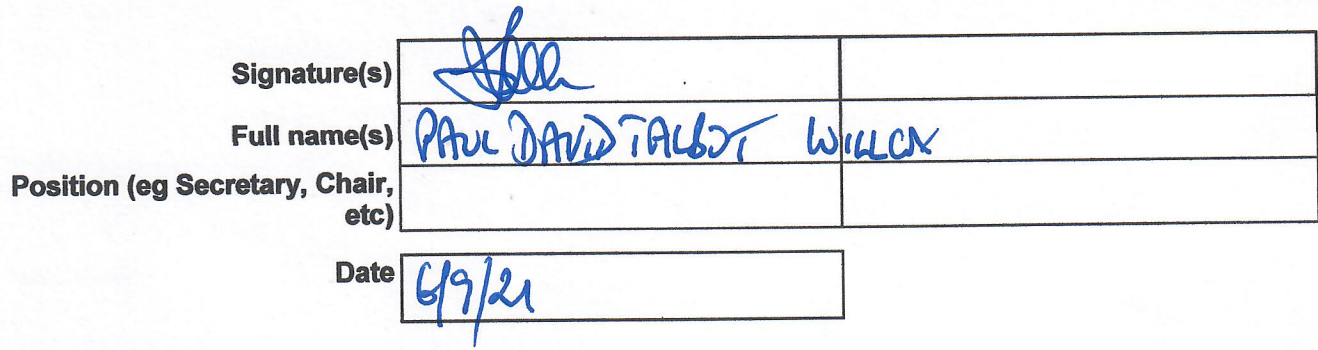 Signature(s)
Full name(s) PAUL DAVID TALBOT WILLCOX
Position (eg Secretary, Chair,
etc)
Date 6/9/21